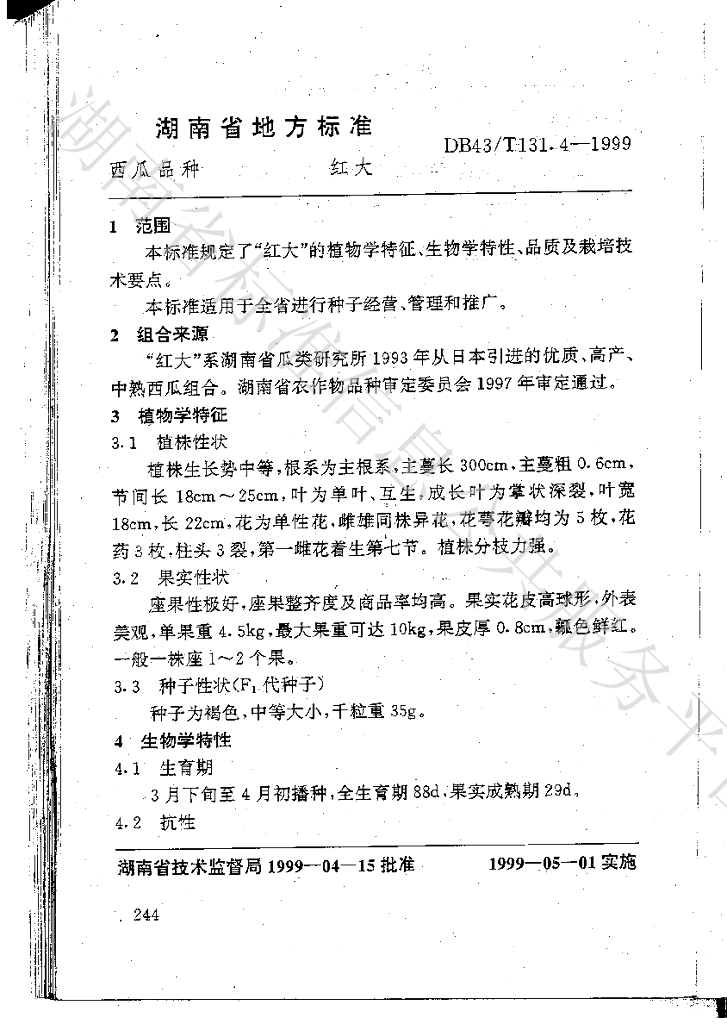 湖南省地方标准
DB43/T131.4—1999
西瓜品种 红大
1 范围
本标准规定了“红大”的植物学特征、生物学特性、品质及栽培技
术要点。
本标准适用于全省进行种子经营、管理和推广。
2 组合来源
“红大”系湖南省瓜类研究所1993年从日本引进的优质、高产、
中熟西瓜组合。湖南省农作物品种审定委员会1997年审定通过。
3 植物学特征
3.1 植株性状
植株生长势中等,根系为主根系,主蔓长300cm,主蔓粗0.6cm,
节间长18cm～25cm,叶为单叶、互生,成长叶为掌状深裂,叶宽
18cm,长22cm,花为单性花,雌雄同株异花,花萼花瓣均为5枚,花
药3枚,柱头3裂,第一雌花着生第七节。植株分枝力强。
3.2 果实性状
座果性极好,座果整齐度及商品率均高。果实花皮高球形,外表
美观,单果重4.5kg,最大果重可达10kg,果皮厚0.8cm,瓤色鲜红。
一般一株座1～2个果。
3.3 种子性状(F1代种子)
种子为褐色,中等大小,千粒重35g。
4 生物学特性
4.1 生育期
3月下旬至4月初播种,全生育期88d,果实成熟期29d。
4.2 抗性
湖南省技术监督局1999—04—15批准 1999—05—01实施
244
湖南省标准信息公共服务平台